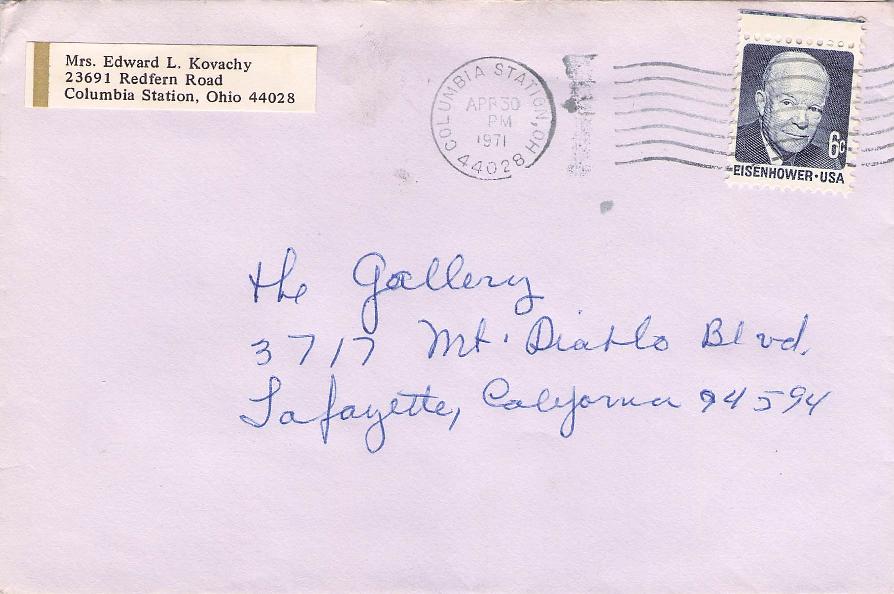 Mrs. Edward L. Kovachy
23691 Redfern Road
Columbia Station, Ohio 44028
COLUMBIA STATION, OH
APR 30
PM
1971
44028
6c
EISENHOWER·USA
the Gallery
3717 Mt. Diablo Blvd.
Lafayette, California 94594